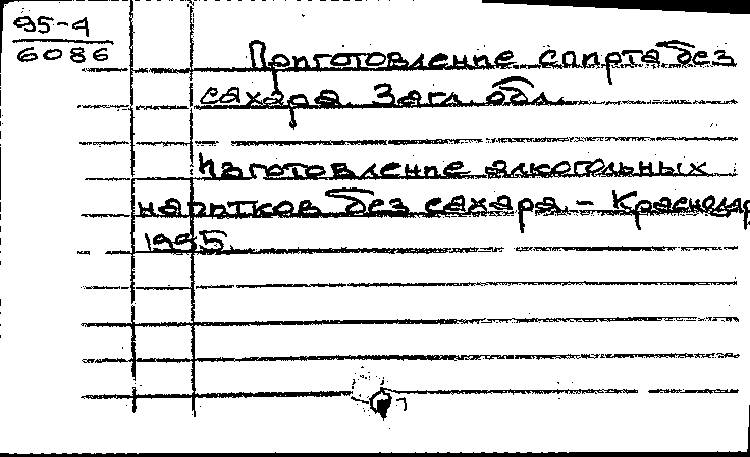 95-4
6086
Приготовление спирта без
сахара. Загл. обл.
Изготовление алкогольных
напитков без сахара. - Краснодар
1995.